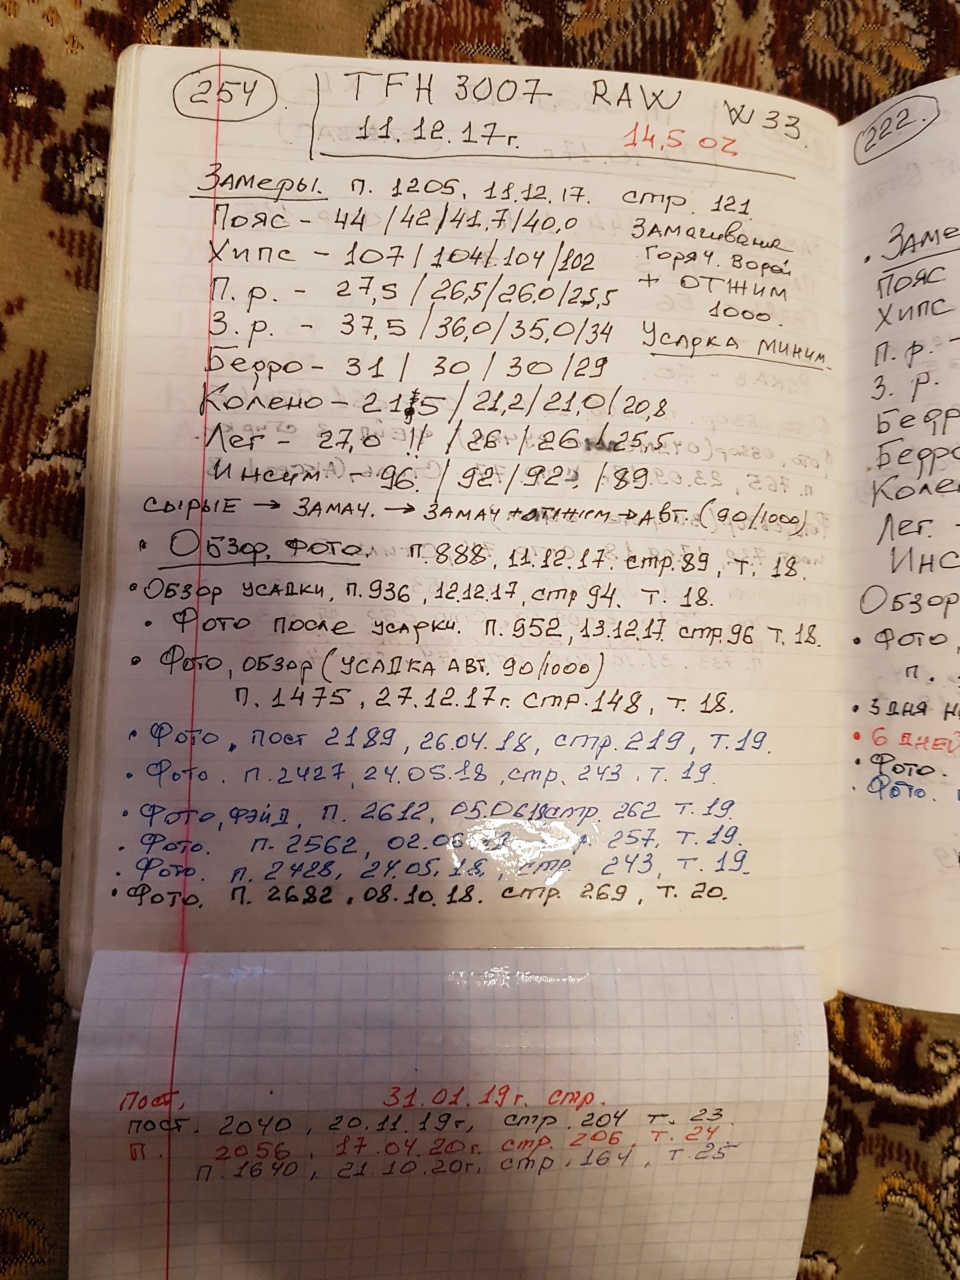 254. TFH 3007 RAW W 33.
11.12.17г. 14,5 OZ
Замеры. п. 1205, 11.12.17. стр. 121.
Пояс - 44 / 42 / 41,7 / 40,0 Замачивание
Хипс - 107 / 104 / 104 / 102 горяч. водой
П.р. - 27,5 / 26,5 / 26,0 / 25,5 + ОТЖИМ
1000.
З.р. - 37,5 / 36,0 / 35,0 / 34 Усадка миним.
Бедро - 31 / 30 / 30 / 29
Колено - 21,5 / 21,2 / 21,0 / 20,8
Лег - 27,0 !! / 26 / 26 / 25,5
Инсим - 96. / 92 / 92 / 89
СЫРЫЕ → ЗАМАЧ. → ЗАМАЧ + ОТЖИМ → АВТ. (90/1000)
• Обзор, фото. п. 888, 11.12.17. стр. 89, т. 18.
• Обзор усадки, п. 936, 12.12.17, стр 94. т. 18.
• Фото после усадки. п. 952, 13.12.17. стр. 96 т. 18.
• Фото, обзор (УСАДКА АВТ. 90/1000)
п. 1475, 27.12.17г. стр. 148, т. 18.
• Фото, пост 2189, 26.04.18, стр. 219, т. 19.
• Фото. п. 2427, 24.05.18, стр. 243. т. 19.
• Фото, фэйд, п. 2612, 05.06.18 стр. 262 т. 19.
• Фото. п. 2562, 02.06 257, т. 19.
• Фото. п. 2428, 24.05.18, стр. 243, т. 19.
• Фото. п. 2682, 08.10.18. стр. 269, т. 20.
Пост, 31.01.19г. стр.
пост. 2040, 20.11.19г, стр. 204 т. 23.
П. 2056, 17.04.20г. стр. 206, т. 24
п. 1640, 21.10.20г. стр. 164, т. 25
222.
• Заме
Пояс
Хипс
П.р. -
З.р.
Бедр
Бедро
Колен
Лег. -
Инс
Обзор
• Фото,
п.
• 3 дня н
• 6 дней
• Фото.
• Фото.